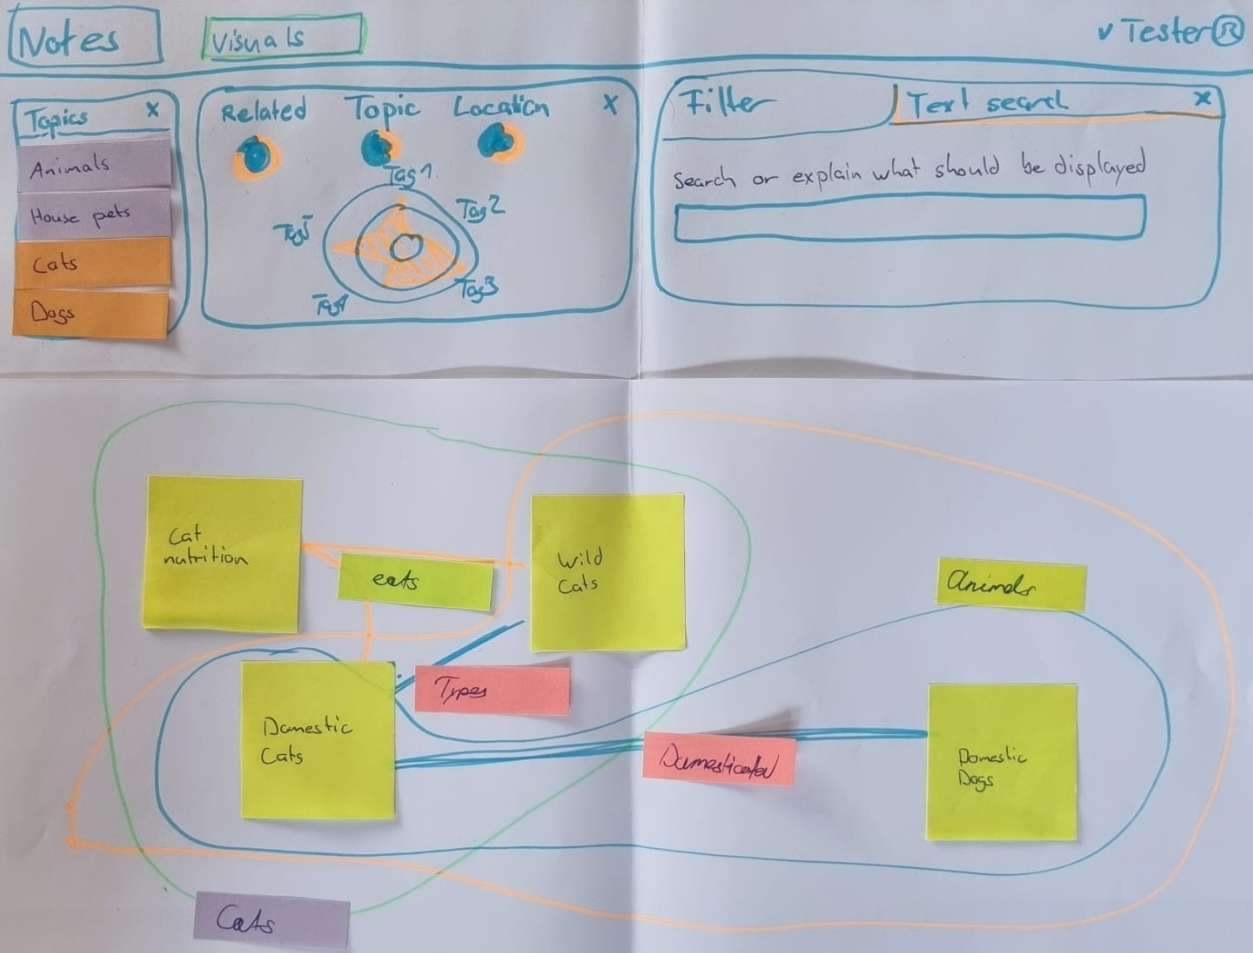 Notes
Visuals
v Tester ®
Topics x
Animals
House pets
Cats
Dogs
Related Topic Location x
Tag 1
Tag2
Tag3
Tag4
Tag5
Filter
Text search x
Search or explain what should be displayed
Cat
nutrition
eats
Wild
Cats
Animals
Types
Domestic
Cats
Domesticated
Domestic
Dogs
Cats